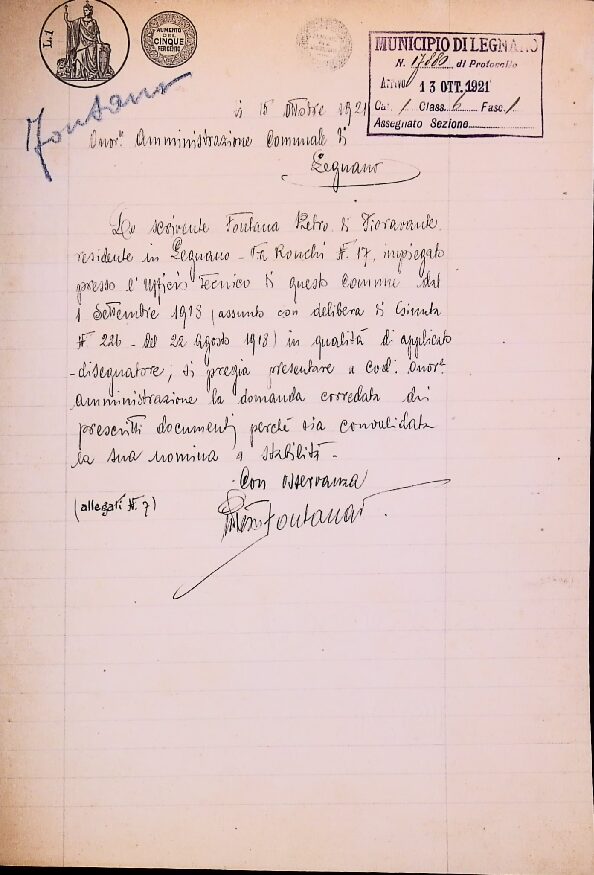 L.1
AUMENTO
DEL
CINQUE
PER CENTO
MUNICIPIO DI LEGNANO
N. di Protocollo
Arrivo 13 OTT. 1921
Cat. 1 Class. 6 Fasc. 1
Assegnato Sezione
Fontana
li 15 ottobre 1921
Onor.le Amministrazione Comunale di
Legnano
Lo scrivente Fontana Pietro di Fioravante
residente in Legnano - Fr. Ronchi N. 17, impiegato
presso l'Ufficio Tecnico di questo Comune dal
1 Settembre 1918 (assunto con delibera di Giunta
N. 226 - del 22 Agosto 1918) in qualità di applicato
-disegnatore, si pregia presentare a cod. Onor.le
amministrazione la domanda corredata dei
prescritti documenti perchè sia convalidata
la sua nomina a stabilità -
Con osservanza
(allegati N. 7)
Fontana